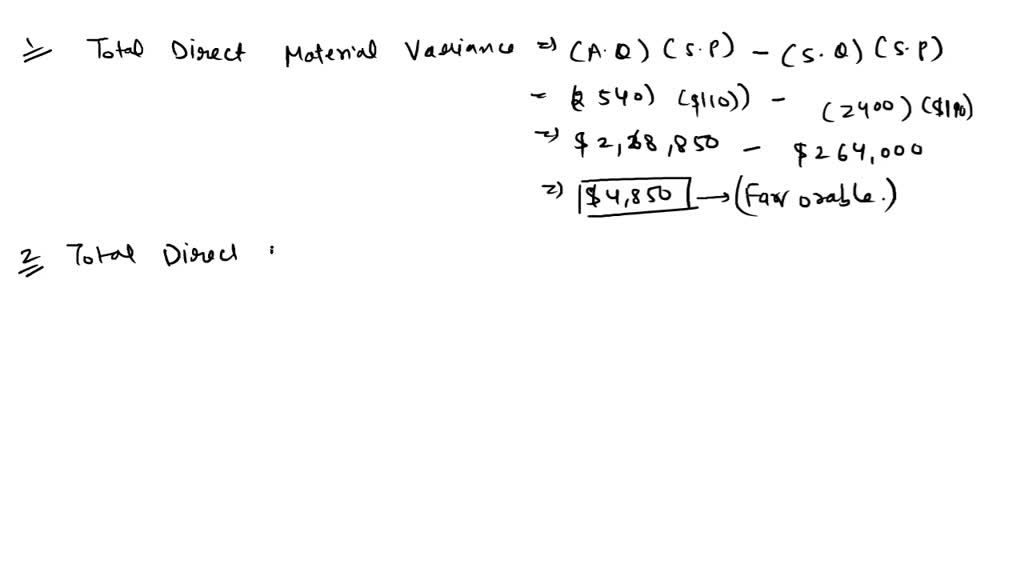 1 Total Direct Material Variance => (A.Q) (S.P) - (S.Q) (S.P)
= (2540) ($110)) - (2400) ($110)
=> $2,68,850 - $264,000
=> $4,850 → (Favorable.)
2 Total Direct